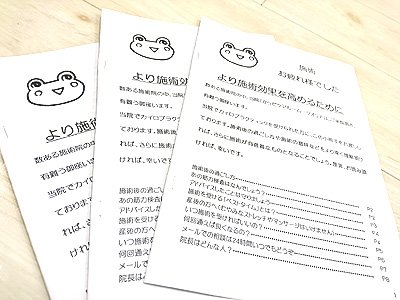 施術
お疲れ様でした
より施術効果を高めるために
数ある施術院の中、当院
有難う御座います。
当院でカイロプラクティックを受けられた方に、この
ております。施術後の過ごし方や
れば、さらに施術が有意義なものとなることでしょう。皆様、お読み頂
ければ、幸いです。
施術後の過ごし方
あの筋力検査はなんでしょう?
アドバイスしたことは守りましょう
施術を受ける「ベストタイム」とは?
産後の方へ(むやみなストレッチやマッサージはいけません)
いつ施術を受ければいいの?
何回通えば良くなるの?
メールでの相談は24時間いつでもどうぞ
院長はどんな人?
P2
P2
P3
P4
P4
P5
P6
P7
P8
より施術効
数ある施術院の中、当院
有難う御座います。
当院でカイロプラクティ
ております。施術
れば、さらに施
ければ、幸いで
施術後の過ごし
あの筋力検査は
アドバイスした
施術を受ける
産後の方へ
いつ施術を
何回通えば
メールでの
院長はどん
より施術
数ある施術院の
有難う御座い
当院でカイ
ております
れば、さ
けれ